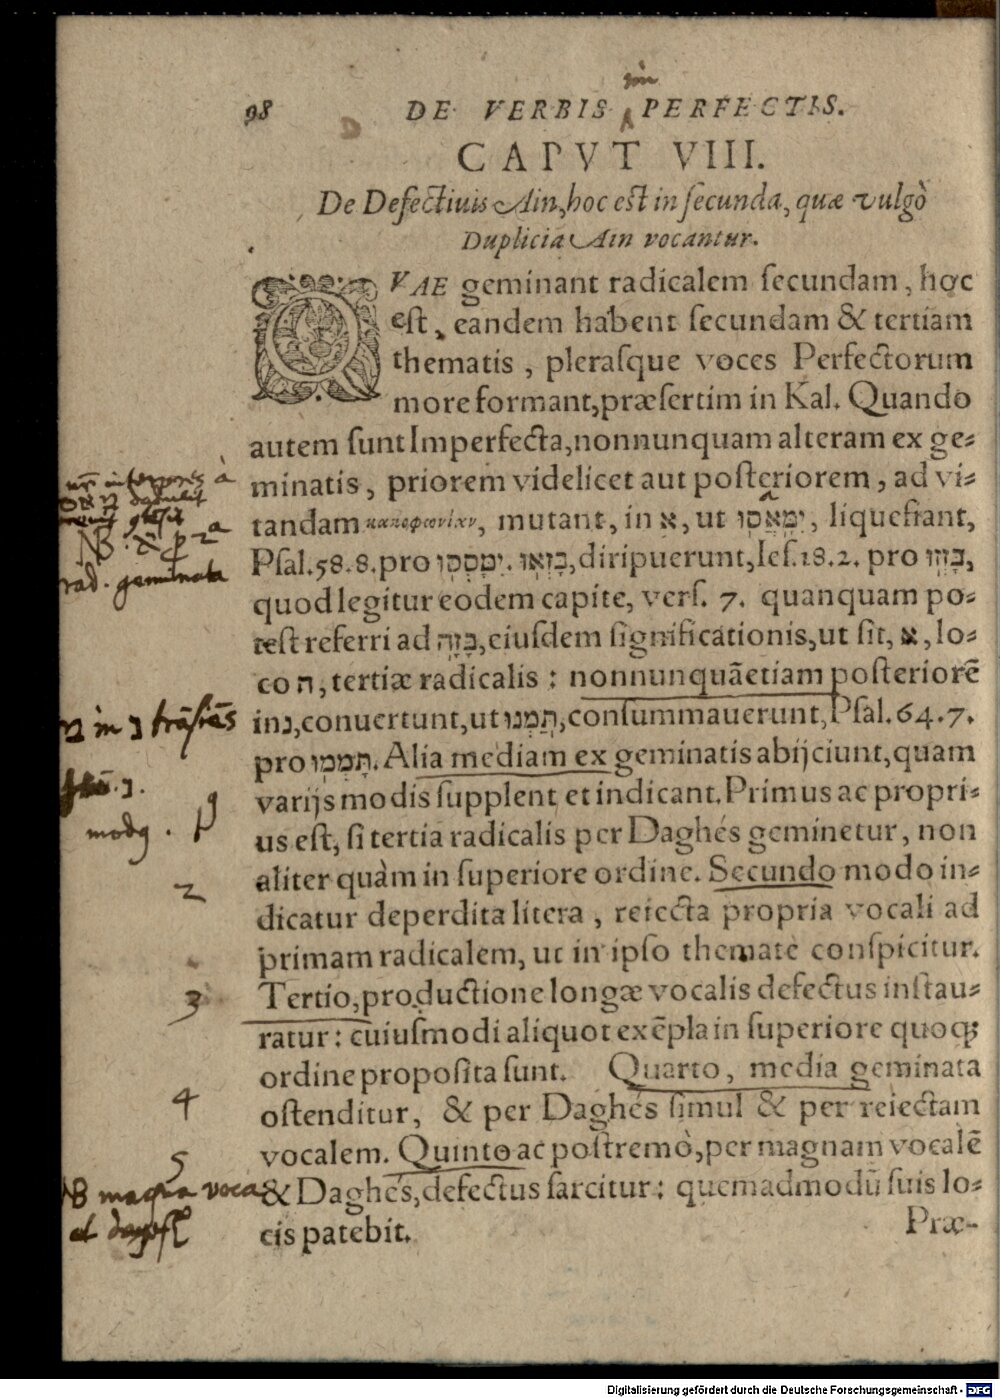 im
98 DE VERBIS PERFECTIS.
CAPVT VIII.
De Defectiuis Ain, hoc est in secunda, quæ vulgò
Duplicia Ain vocantur.
QVAE geminant radicalem secundam, hoc
est, eandem habent secundam & tertiam
thematis, plerasque voces Perfectorum
more formant, præsertim in Kal. Quando
autem sunt Imperfecta, nonnunquam alteram ex ge=
minatis, priorem videlicet aut posteriorem, ad vi=
tandam κακοφωνίαν, mutant, in א, ut יִמָּאֲסוּ, liquefiant,
Psal. 58. 8. pro יִמָּסְסוּ. בָּזְאוּ, diripuerunt, Ies. 18. 2. pro בָּזְזוּ,
quod legitur eodem capite, vers. 7. quanquam po=
test referri ad בָּזָה, eiusdem significationis, ut sit, א, lo=
co ה, tertiæ radicalis: nonnunquā etiam posteriorē
in נ, conuertunt, ut תַּמְנוּ, consummauerunt, Psal. 64. 7.
pro תָּמְמוּ. Alia mediam ex geminatis abijciunt, quam
varijs modis supplent et indicant. Primus ac propri=
us est, si tertia radicalis per Daghés geminetur, non
aliter quàm in superiore ordine. Secundo modo in=
dicatur deperdita litera, reiecta propria vocali ad
primam radicalem, ut in ipso themate conspicitur.
Tertio, productione longæ vocalis defectus instau=
ratur: cuiusmodi aliquot exēpla in superiore quoqꝫ
ordine proposita sunt. Quarto, media geminata
ostenditur, & per Daghés simul & per reiectam
vocalem. Quinto ac postremò, per magnam vocalē
& Daghés, defectus sarcitur: quemadmodū suis lo=
cis patebit.
Præ-
rad. geminata
מ in נ trāsiēs
modꝰ.
2
3
4
5
NB magna voca
et dagesch
Digitalisierung gefördert durch die Deutsche Forschungsgemeinschaft - DFG